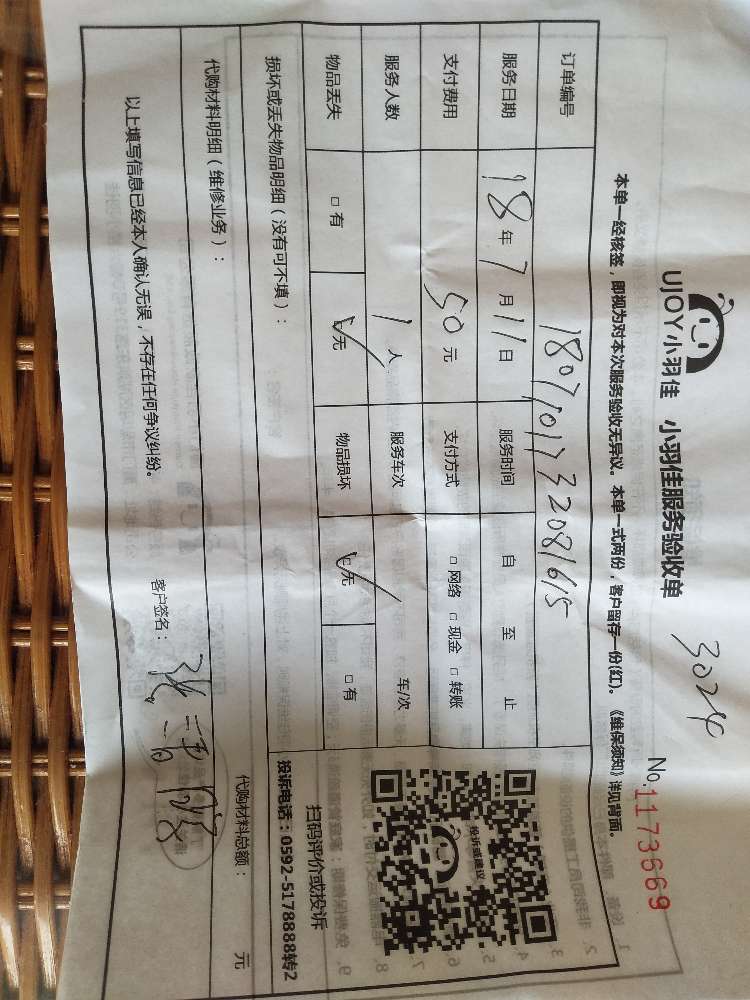 3024
UJOY小羽佳 小羽佳服务验收单
No.1173669
本单一经核签，即视为对本次服务验收无异议。本单一式两份，客户留存一份(红)。《维保须知》详见背面。
订单编号 1807101732081615
服务日期 18年7月11日 服务时间 自 至 止
支付费用 50元 支付方式 □网络 □现金 □转账
服务人数 1人 服务车次 车/次
物品丢失 □有 ☑无 物品损坏 ☑无 □有
投诉或建议
扫码评价或投诉
投诉电话：0592-5178888转2
损坏或丢失物品明细（没有可不填）：
代购材料明细（维修业务）：
代购材料总额： 元
以上填写信息已经本人确认无误，不存在任何争议纠纷。
客户签名：